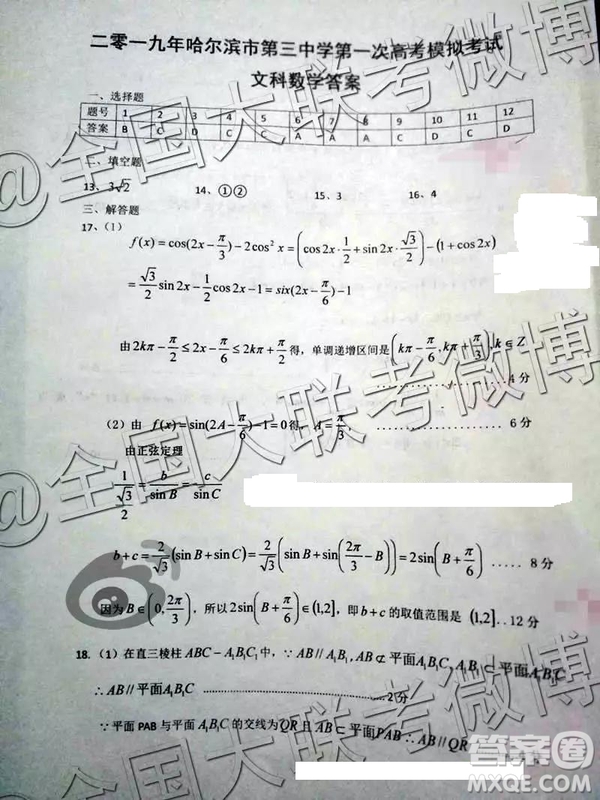 二零一九年哈尔滨市第三中学第一次高考模拟考试
文科数学答案
一、选择题
题号 1 2 3 4 5 6 7 8 9 10 11 12
答案 B C D C A A C D C D
二、填空题
13、3√2 14、①② 15、3 16、4
三、解答题
17、（1）
f(x)=cos(2x-π/3)-2cos²x=(cos2x·1/2+sin2x·√3/2)-(1+cos2x)
=√3/2 sin2x-1/2 cos2x-1=six(2x-π/6)-1
由2kπ-π/2≤2x-π/6≤2kπ+π/2得，单调递增区间是(kπ-π/6,kπ+π/3),k∈Z
4分
（2）由 f(x)=sin(2A-π/6)-1=0得，A=π/3， ……… 6分
由正弦定理
1/(√3/2)=b/sinB=c/sinC
b+c=2/√3(sinB+sinC)=2/√3(sinB+sin(2π/3-B))=2sin(B+π/6) …… 8分
因为B∈(0,2π/3)，所以2sin(B+π/6)∈(1,2]，即b+c的取值范围是(1,2]..12分
18、（1）在直三棱柱ABC-A₁B₁C₁中，∵AB∥A₁B₁,AB⊄平面A₁B₁C,A₁B₁⊂平面A₁B₁C
∴AB∥平面A₁B₁C ……………………2分
∵平面PAB与平面A₁B₁C的交线为QR且AB⊂平面PAB∴AB∥QR
@全国大联考微博
@全国大联考微博
@全国大联考微博
答案圈
MXQE.COM